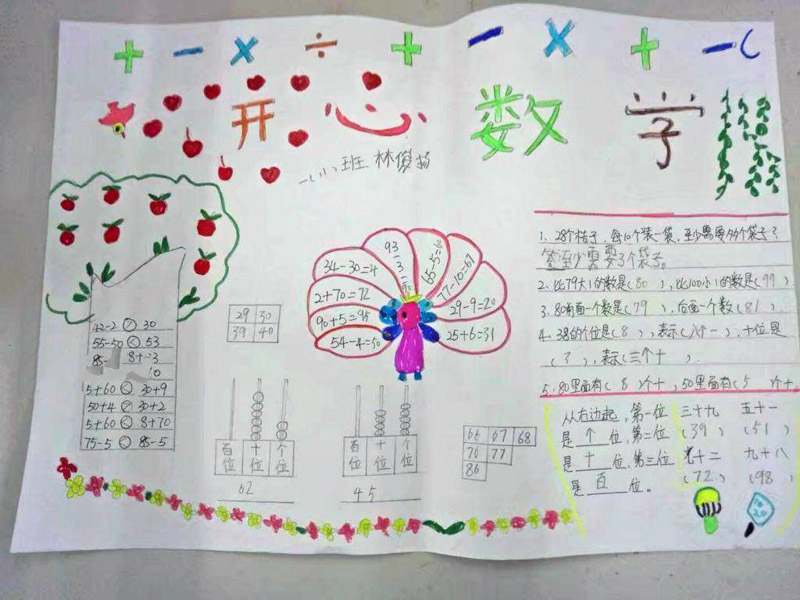 + - × ÷ + - × + -
开心数学
一(1)班 林俊扬
34-30=4
2+70=72
90+5=95
54-4=50
93-3=90
65-5=60
77-10=67
29-9=20
25+6=31
42-2 > 30
55-50 < 53
5+60 < 30+9
50+4 > 30+2
5+60 < 8+70
75-5 < 85-5
29 30
39 40
百位 十位 个位
62
百位 十位 个位
45
66 67 68
76 77
86
1、28个桔子,每10个装一袋,至少需要多少个袋子?
答至少需要3个袋子。
2、比79大1的数是(80),比100小1的数是(99)
3、80前面一个数是(79),后面一个数(81)
4、38的个位是(8),表示(八个一),十位是
(3),表示(三个十)
5、80里面有(8)个十,50里面有(5)个十。
从右边起,第一位
是个位,第二位
是十位,第三位
是百位。
三十九 五十一
(39) (51)
七十二 九十八
(72) (98)